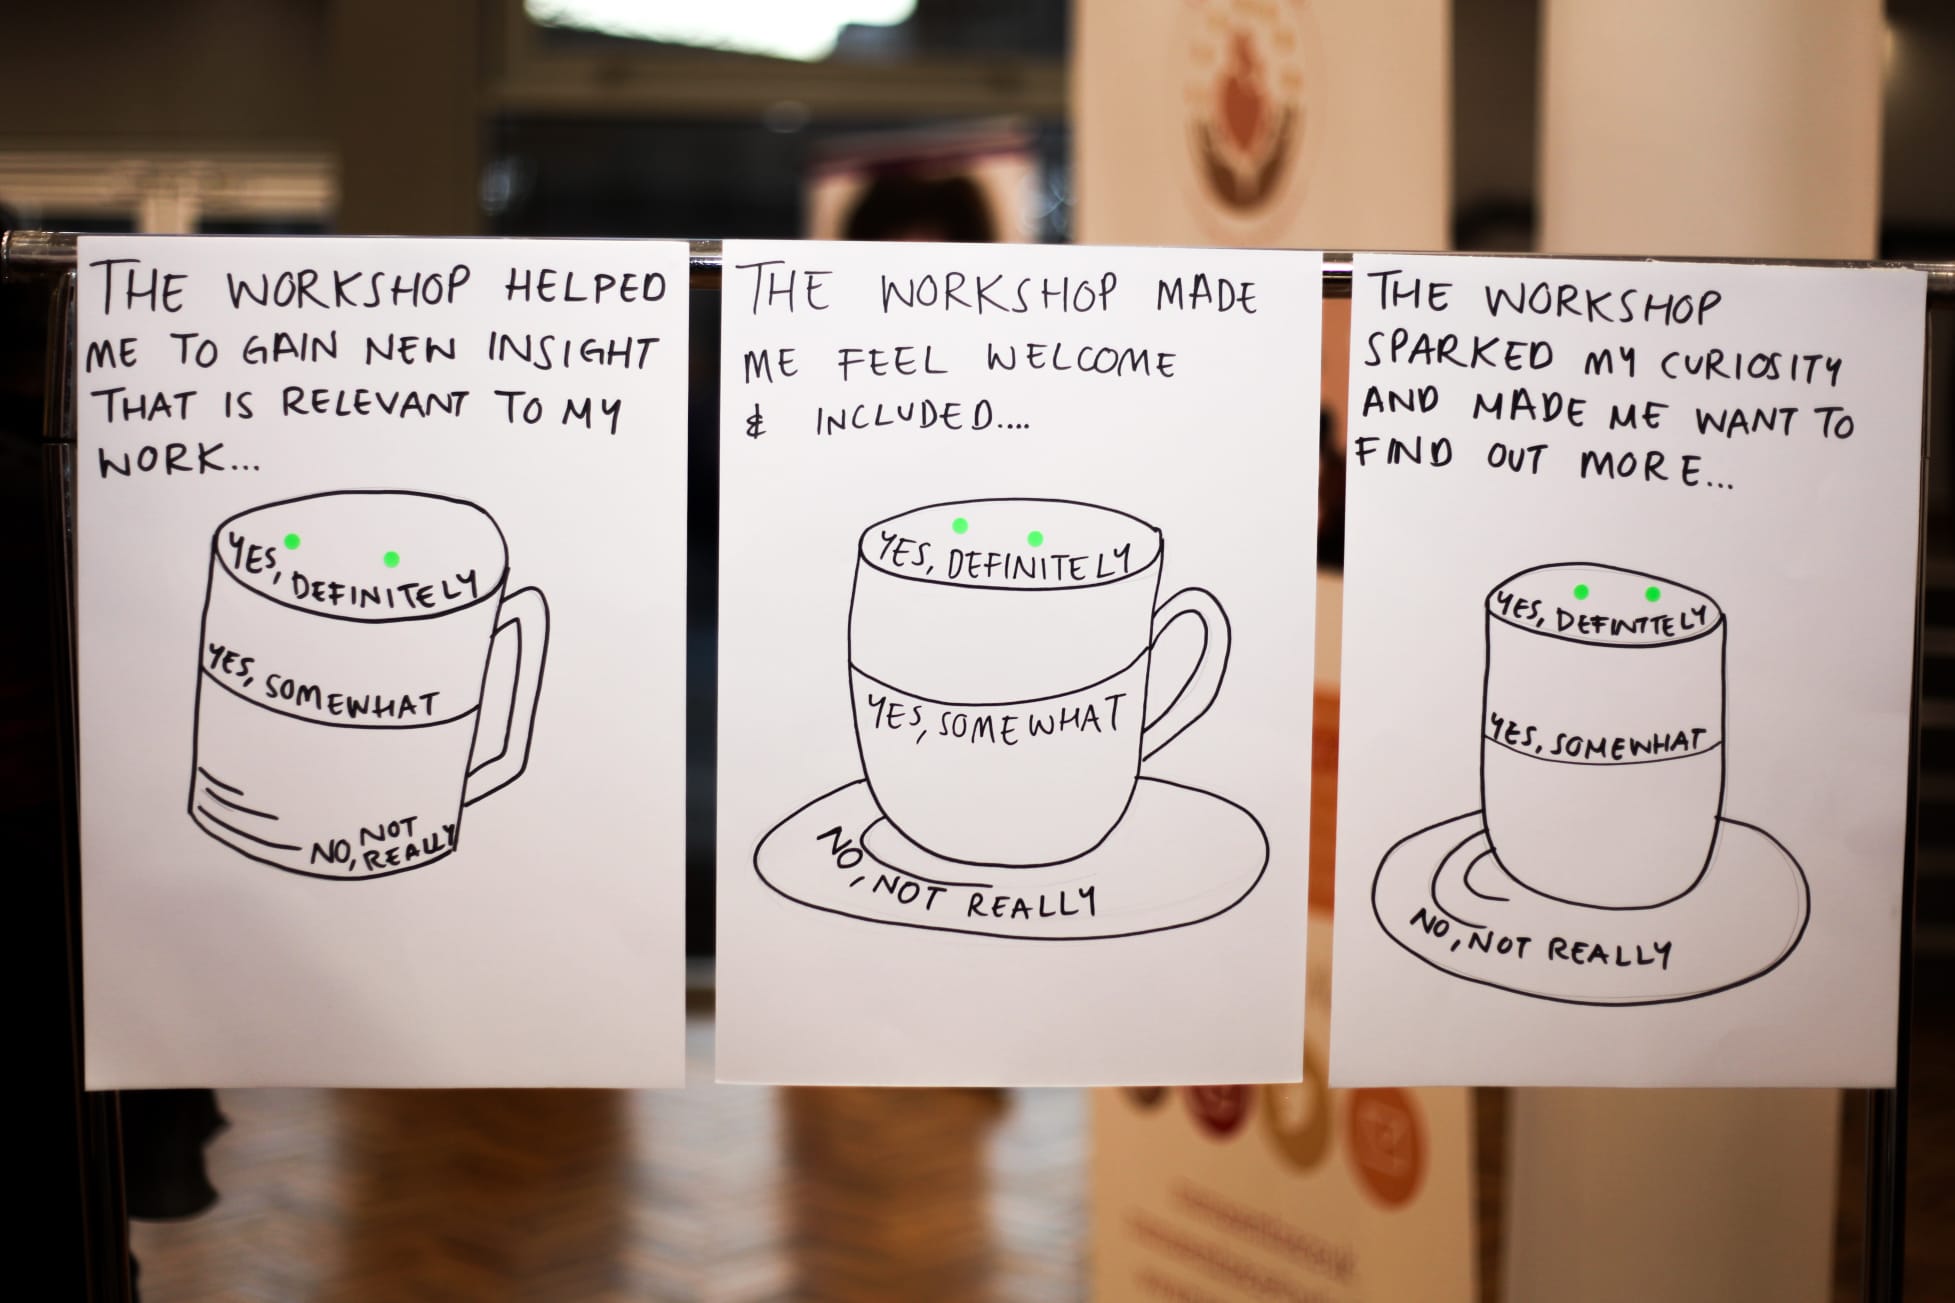 THE WORKSHOP HELPED
ME TO GAIN NEW INSIGHT
THAT IS RELEVANT TO MY
WORK...
YES, DEFINITELY
YES, SOMEWHAT
NO, NOT
REALLY
THE WORKSHOP MADE
ME FEEL WELCOME
& INCLUDED....
YES, DEFINITELY
YES, SOMEWHAT
NO, NOT REALLY
THE WORKSHOP
SPARKED MY CURIOSITY
AND MADE ME WANT TO
FIND OUT MORE...
YES, DEFINITELY
YES, SOMEWHAT
NO, NOT REALLY